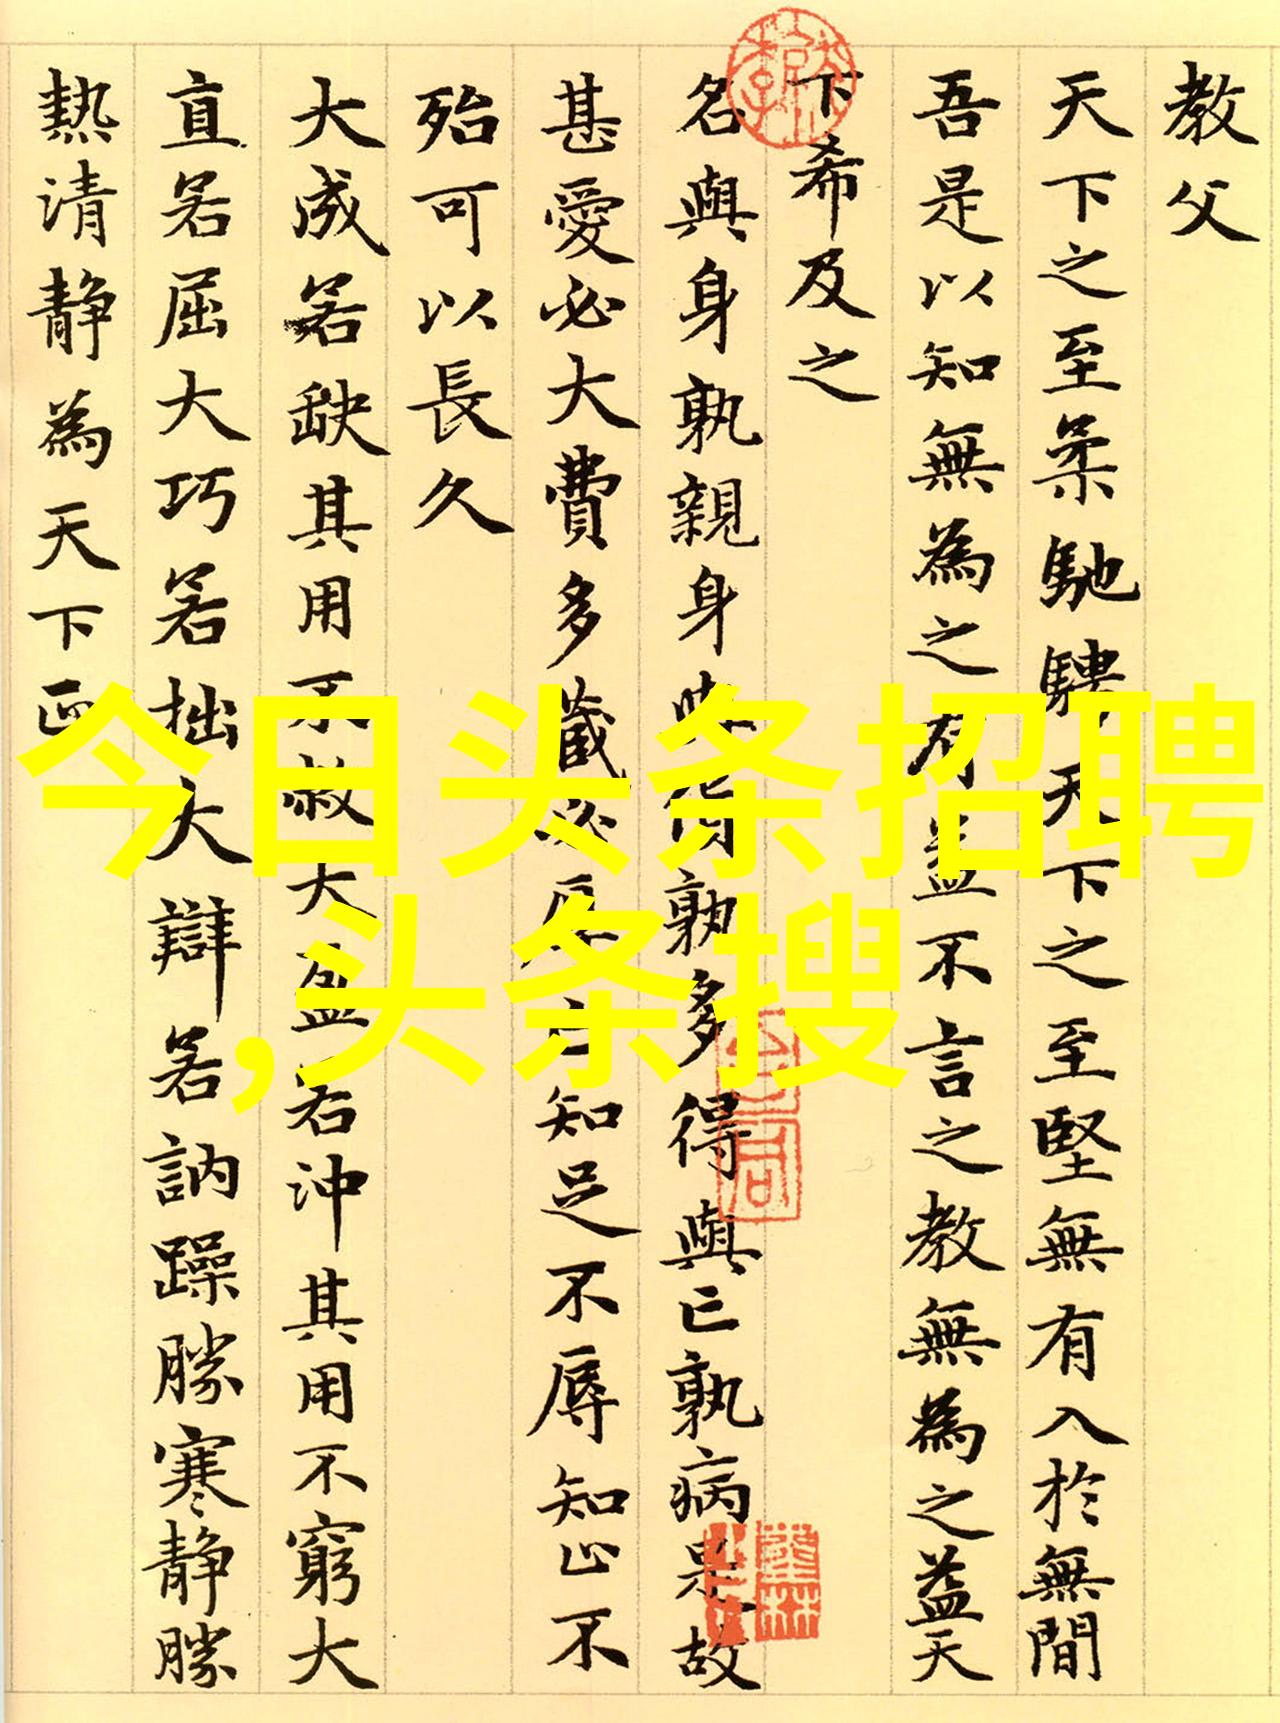 教父
天下之至柔馳騁天下之至堅無有入於無間
吾是以知無為之有益不言之教無為之益天
下希及之
名與身孰親身與貨孰多得與亡孰病是故
甚愛必大費多藏必厚亡知足不辱知止不
殆可以長久
大成若缺其用不敝大盈若沖其用不窮大
直若屈大巧若拙大辯若訥躁勝寒静勝
熱清静為天下正
今日头条招聘
,头条搜